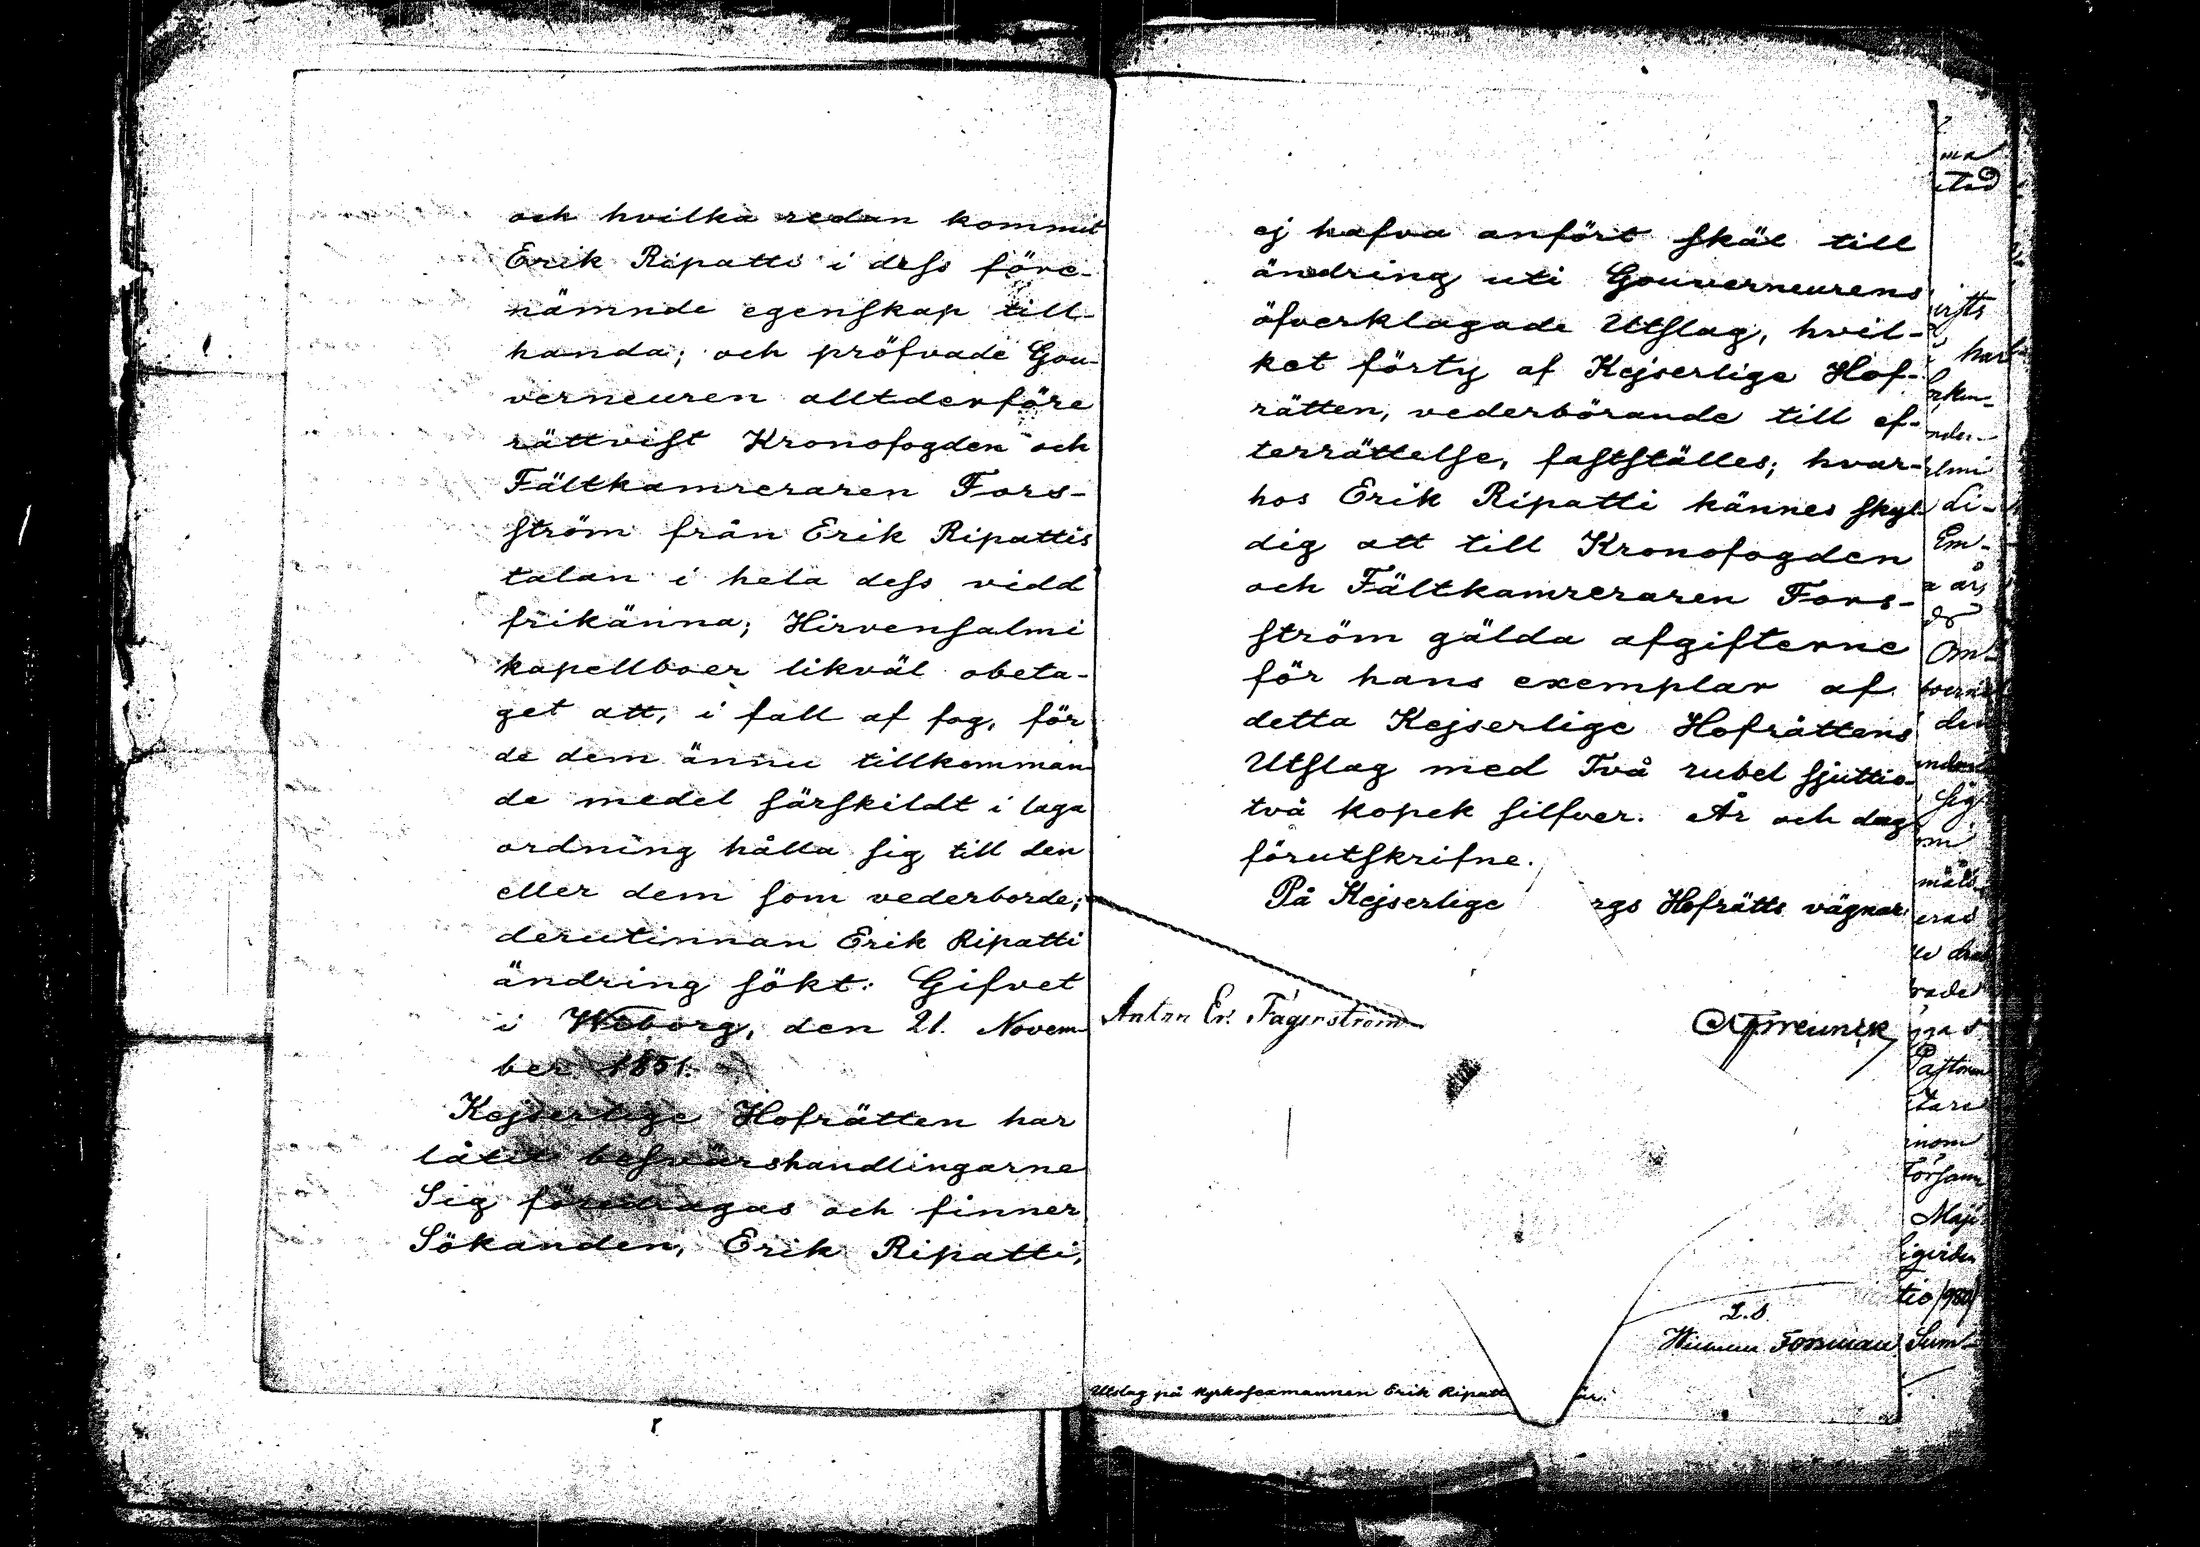 och hvilka redan kommit
Erik Ripatti i dess före-
nämnde egenskap till-
handa; och pröfvade Gou-
verneuren alltderföre
rättvist Kronofogden och
Fältkamreraren Fors-
ström från Erik Ripattis
talan i hela dess vidd
frikänna; Hirvensalmi
kapellboer likväl obeta-
get att, i fall af fog, för
de dem ännu tillkomman-
de medel särskildt i laga
ordning hålla sig till den
eller dem som vederborde;
derutinnan Erik Ripatti
ändring sökt. Gifvet
i Wiborg, den 21. Novem-
ber 1851.
Kejserlige Hofrätten har
låtit besvärshandlingarne
Sig föredragas och finner
Sökanden, Erik Ripatti,
ej hafva anfört skäl till
ändring uti Gouverneurens
öfverklagade Utslag, hvil-
ket förty af Kejserlige Hof-
rätten, vederbörande till ef-
terrättelse, fastställes; hvar-
hos Erik Ripatti kännes skyl-
dig att till Kronofogden
och Fältkamreraren Fors-
ström gälda afgifterne
för hans exemplar af
detta Kejserlige Hofrättens
Utslag med Två rubel sjuttio-
två kopek silfver. År och dag
förutskrifne.
På Kejserlige rgs Hofrätts vägnar
Anton Er. Fagerström
L.S.
Forsman
Utslag på Kyrkosexmannen Erik Ripatt är.
ma
har
Li-
Em-
a år,
Om-
den
sig
om
erad
rade
Pastoren
inom
Försam
Maje
tio
Sum-